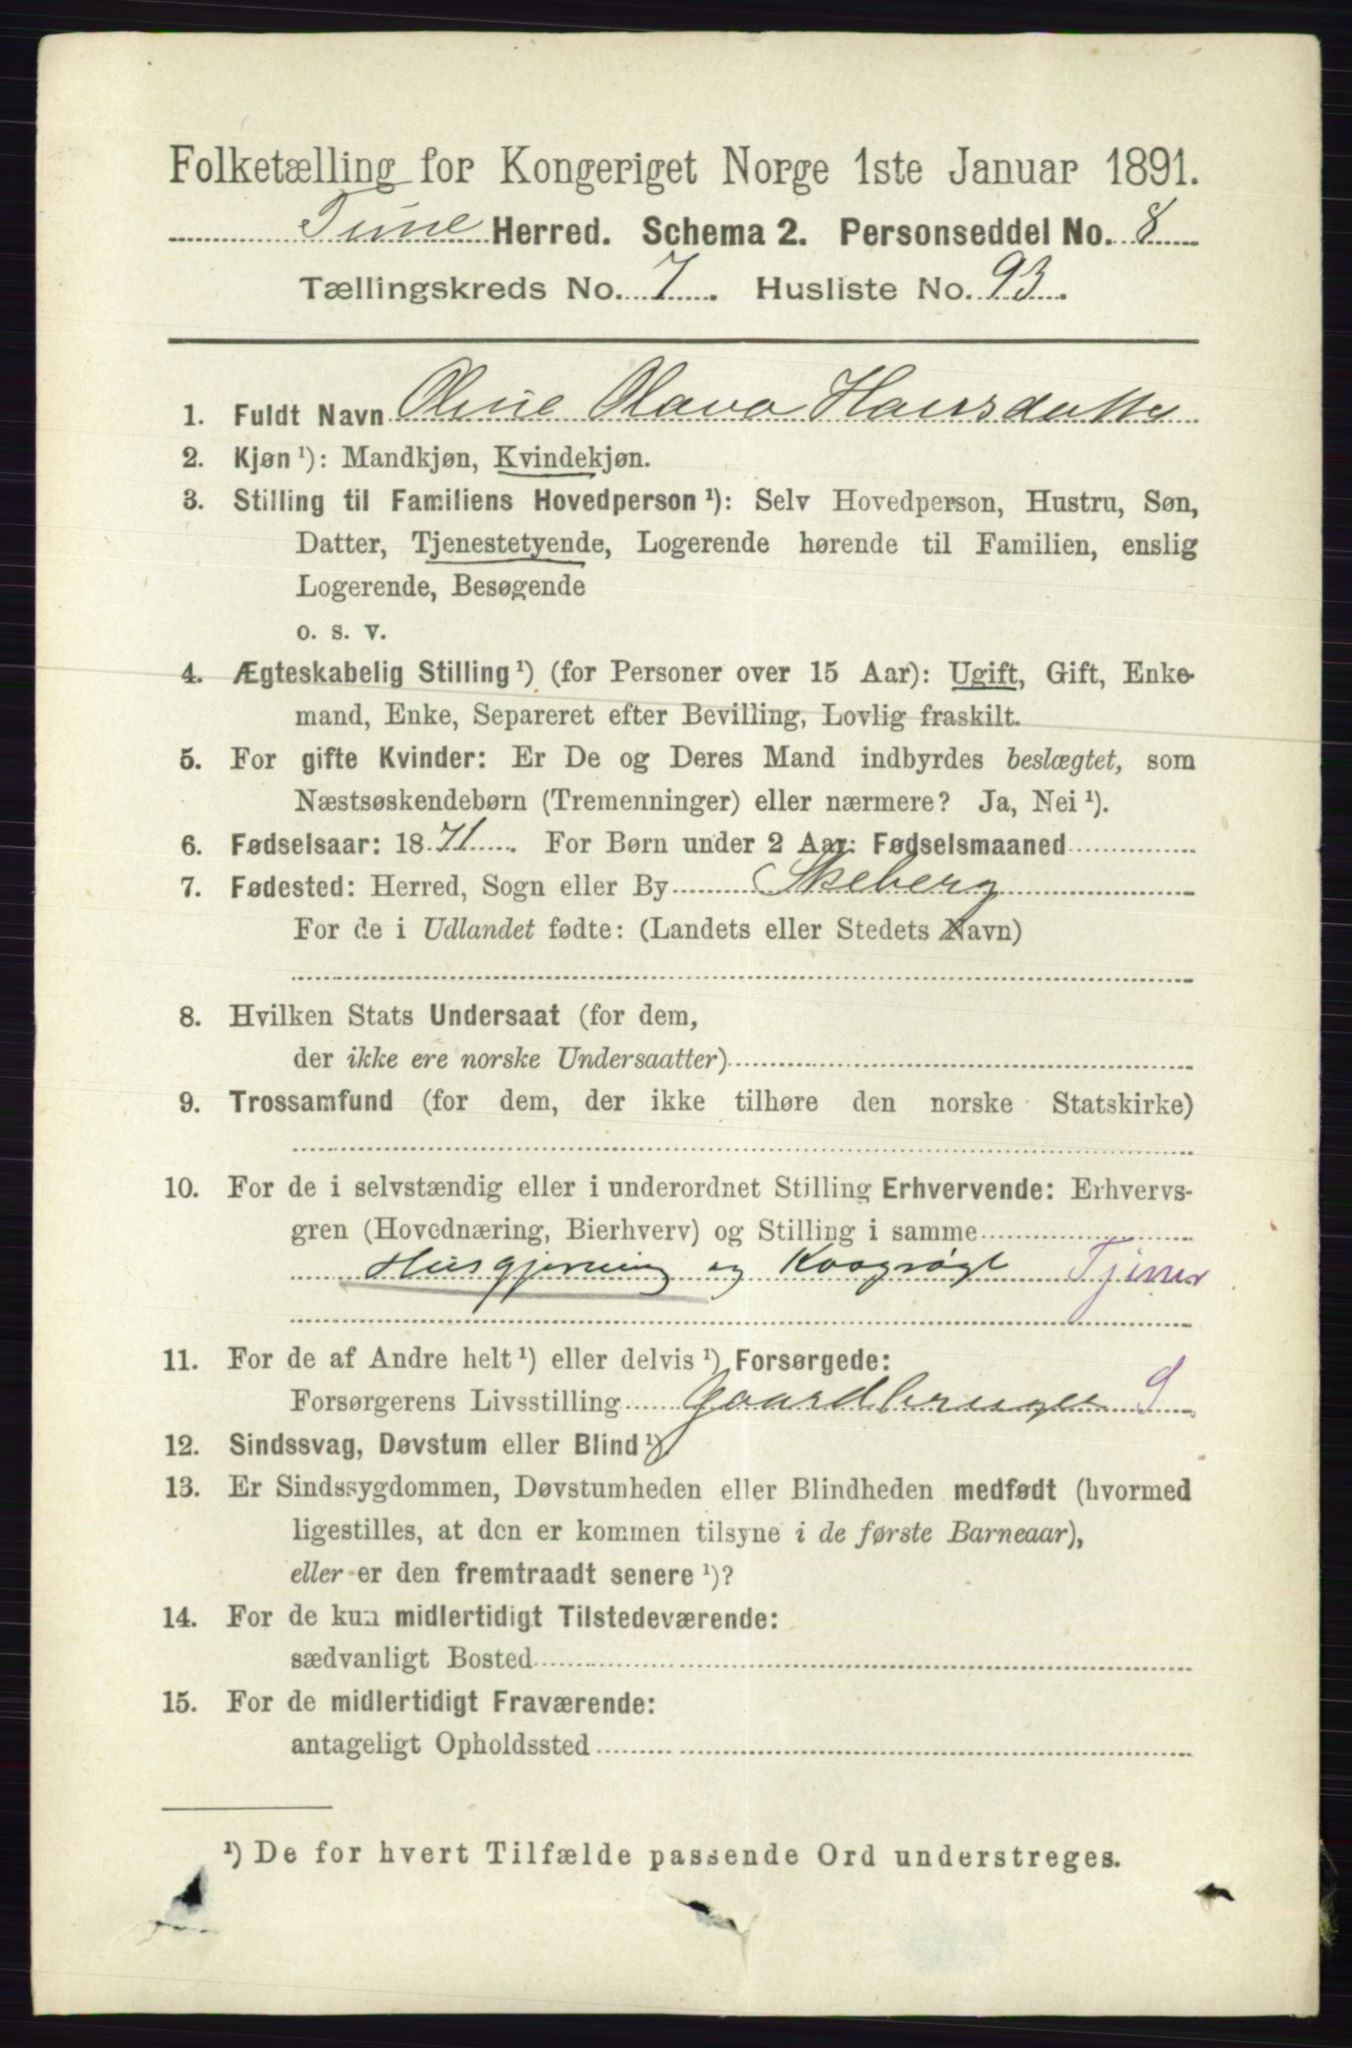 Folketælling for Kongeriget Norge 1ste Januar 1891.
Tune Herred. Schema 2. Personseddel No. 8
Tællingskreds No. 7. Husliste No. 93.
1. Fuldt Navn Oline Olava Hansdatter
2. Kjøn ¹): Mandkjøn, Kvindekjøn.
3. Stilling til Familiens Hovedperson ¹): Selv Hovedperson, Hustru, Søn,
Datter, Tjenestetyende, Logerende hørende til Familien, enslig
Logerende, Besøgende
o. s. v.
4. Ægteskabelig Stilling ¹) (for Personer over 15 Aar): Ugift, Gift, Enke-
mand, Enke, Separeret efter Bevilling, Lovlig fraskilt.
5. For gifte Kvinder: Er De og Deres Mand indbyrdes beslægtet, som
Næstsøskendebørn (Tremenninger) eller nærmere? Ja, Nei ¹).
6. Fødselsaar: 1871. For Børn under 2 Aar: Fødselsmaaned
7. Fødested: Herred, Sogn eller By Skeberg
For de i Udlandet fødte: (Landets eller Stedets Navn)
8. Hvilken Stats Undersaat (for dem,
der ikke ere norske Undersaatter)
9. Trossamfund (for dem, der ikke tilhøre den norske Statskirke)
10. For de i selvstændig eller i underordnet Stilling Erhvervende: Erhvervs-
gren (Hovednæring, Bierhverv) og Stilling i samme
Husgjerning og Koogrøgt Tjener
11. For de af Andre helt ¹) eller delvis ¹) Forsørgede:
Forsørgerens Livsstilling Gaardbruger S
12. Sindssvag, Døvstum eller Blind ¹).
13. Er Sindssygdommen, Døvstumheden eller Blindheden medfødt (hvormed
ligestilles, at den er kommen tilsyne i de første Barneaar),
eller er den fremtraadt senere ¹)?
14. For de kun midlertidigt Tilstedeværende:
sædvanligt Bosted
15. For de midlertidigt Fraværende:
antageligt Opholdssted
¹) De for hvert Tilfælde passende Ord understreges.